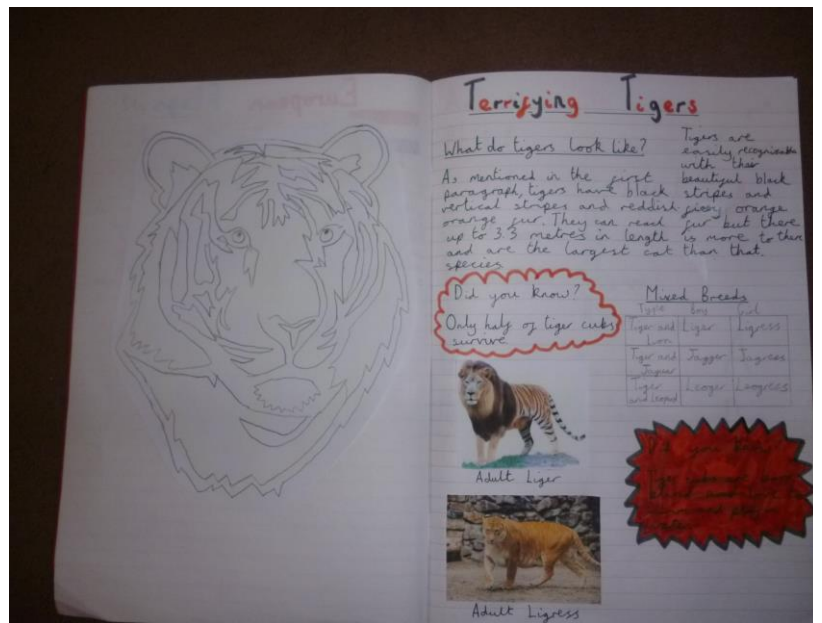 Terrifying Tigers
What do tigers look like?
As mentioned in the first
paragraph, tigers have black
vertical stripes and reddish
orange fur. They can reach
up to 3.3 metres in length
and are the largest cat
species
Tigers are
easily recognizable
with their
beautiful black
stripes and
orange
fur but there
is more to them
than that.
Did you know?
Only half of tiger cubs
survive
Mixed Breeds
Type Boy Girl
Tiger and Lion Liger Ligress
Tiger and Jaguar Jagger Jagress
Tiger and Leopard Leoger Leogress
Adult Liger
Did you know?
Adult Ligress
European